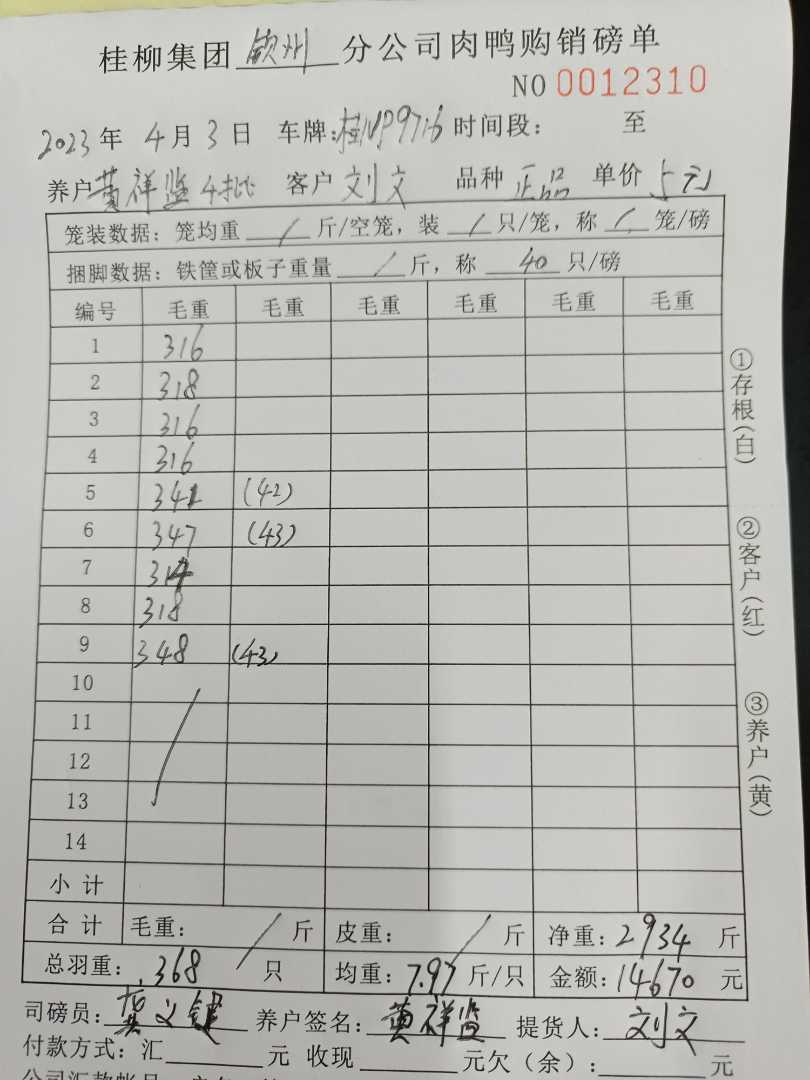 桂柳集团 钦州 分公司肉鸭购销磅单
NO 0012310
2023 年 4 月 3 日 车牌: 时间段: 至
养户 黄祥监 4批 客户 刘文 品种 正品 单价 5元
笼装数据: 笼均重 / 斤/空笼, 装 / 只/笼, 称 / 笼/磅
捆脚数据: 铁筐或板子重量 / 斤, 称 40 只/磅
编号 毛重 毛重 毛重 毛重 毛重 毛重
1 316
2 318
3 316
4 316
5 341 (42)
6 347 (43)
7 314
8 318
9 348 (43)
10
11
12
13
14
小计
合计 毛重: / 斤 皮重: / 斤 净重: 2934 斤
总羽重: 368 只 均重: 7.97 斤/只 金额: 14670 元
司磅员: 养户签名: 黄祥监 提货人: 刘文
付款方式: 汇 元 收现 元欠(余): 元
①存根(白)
②客户(红)
③养户(黄)